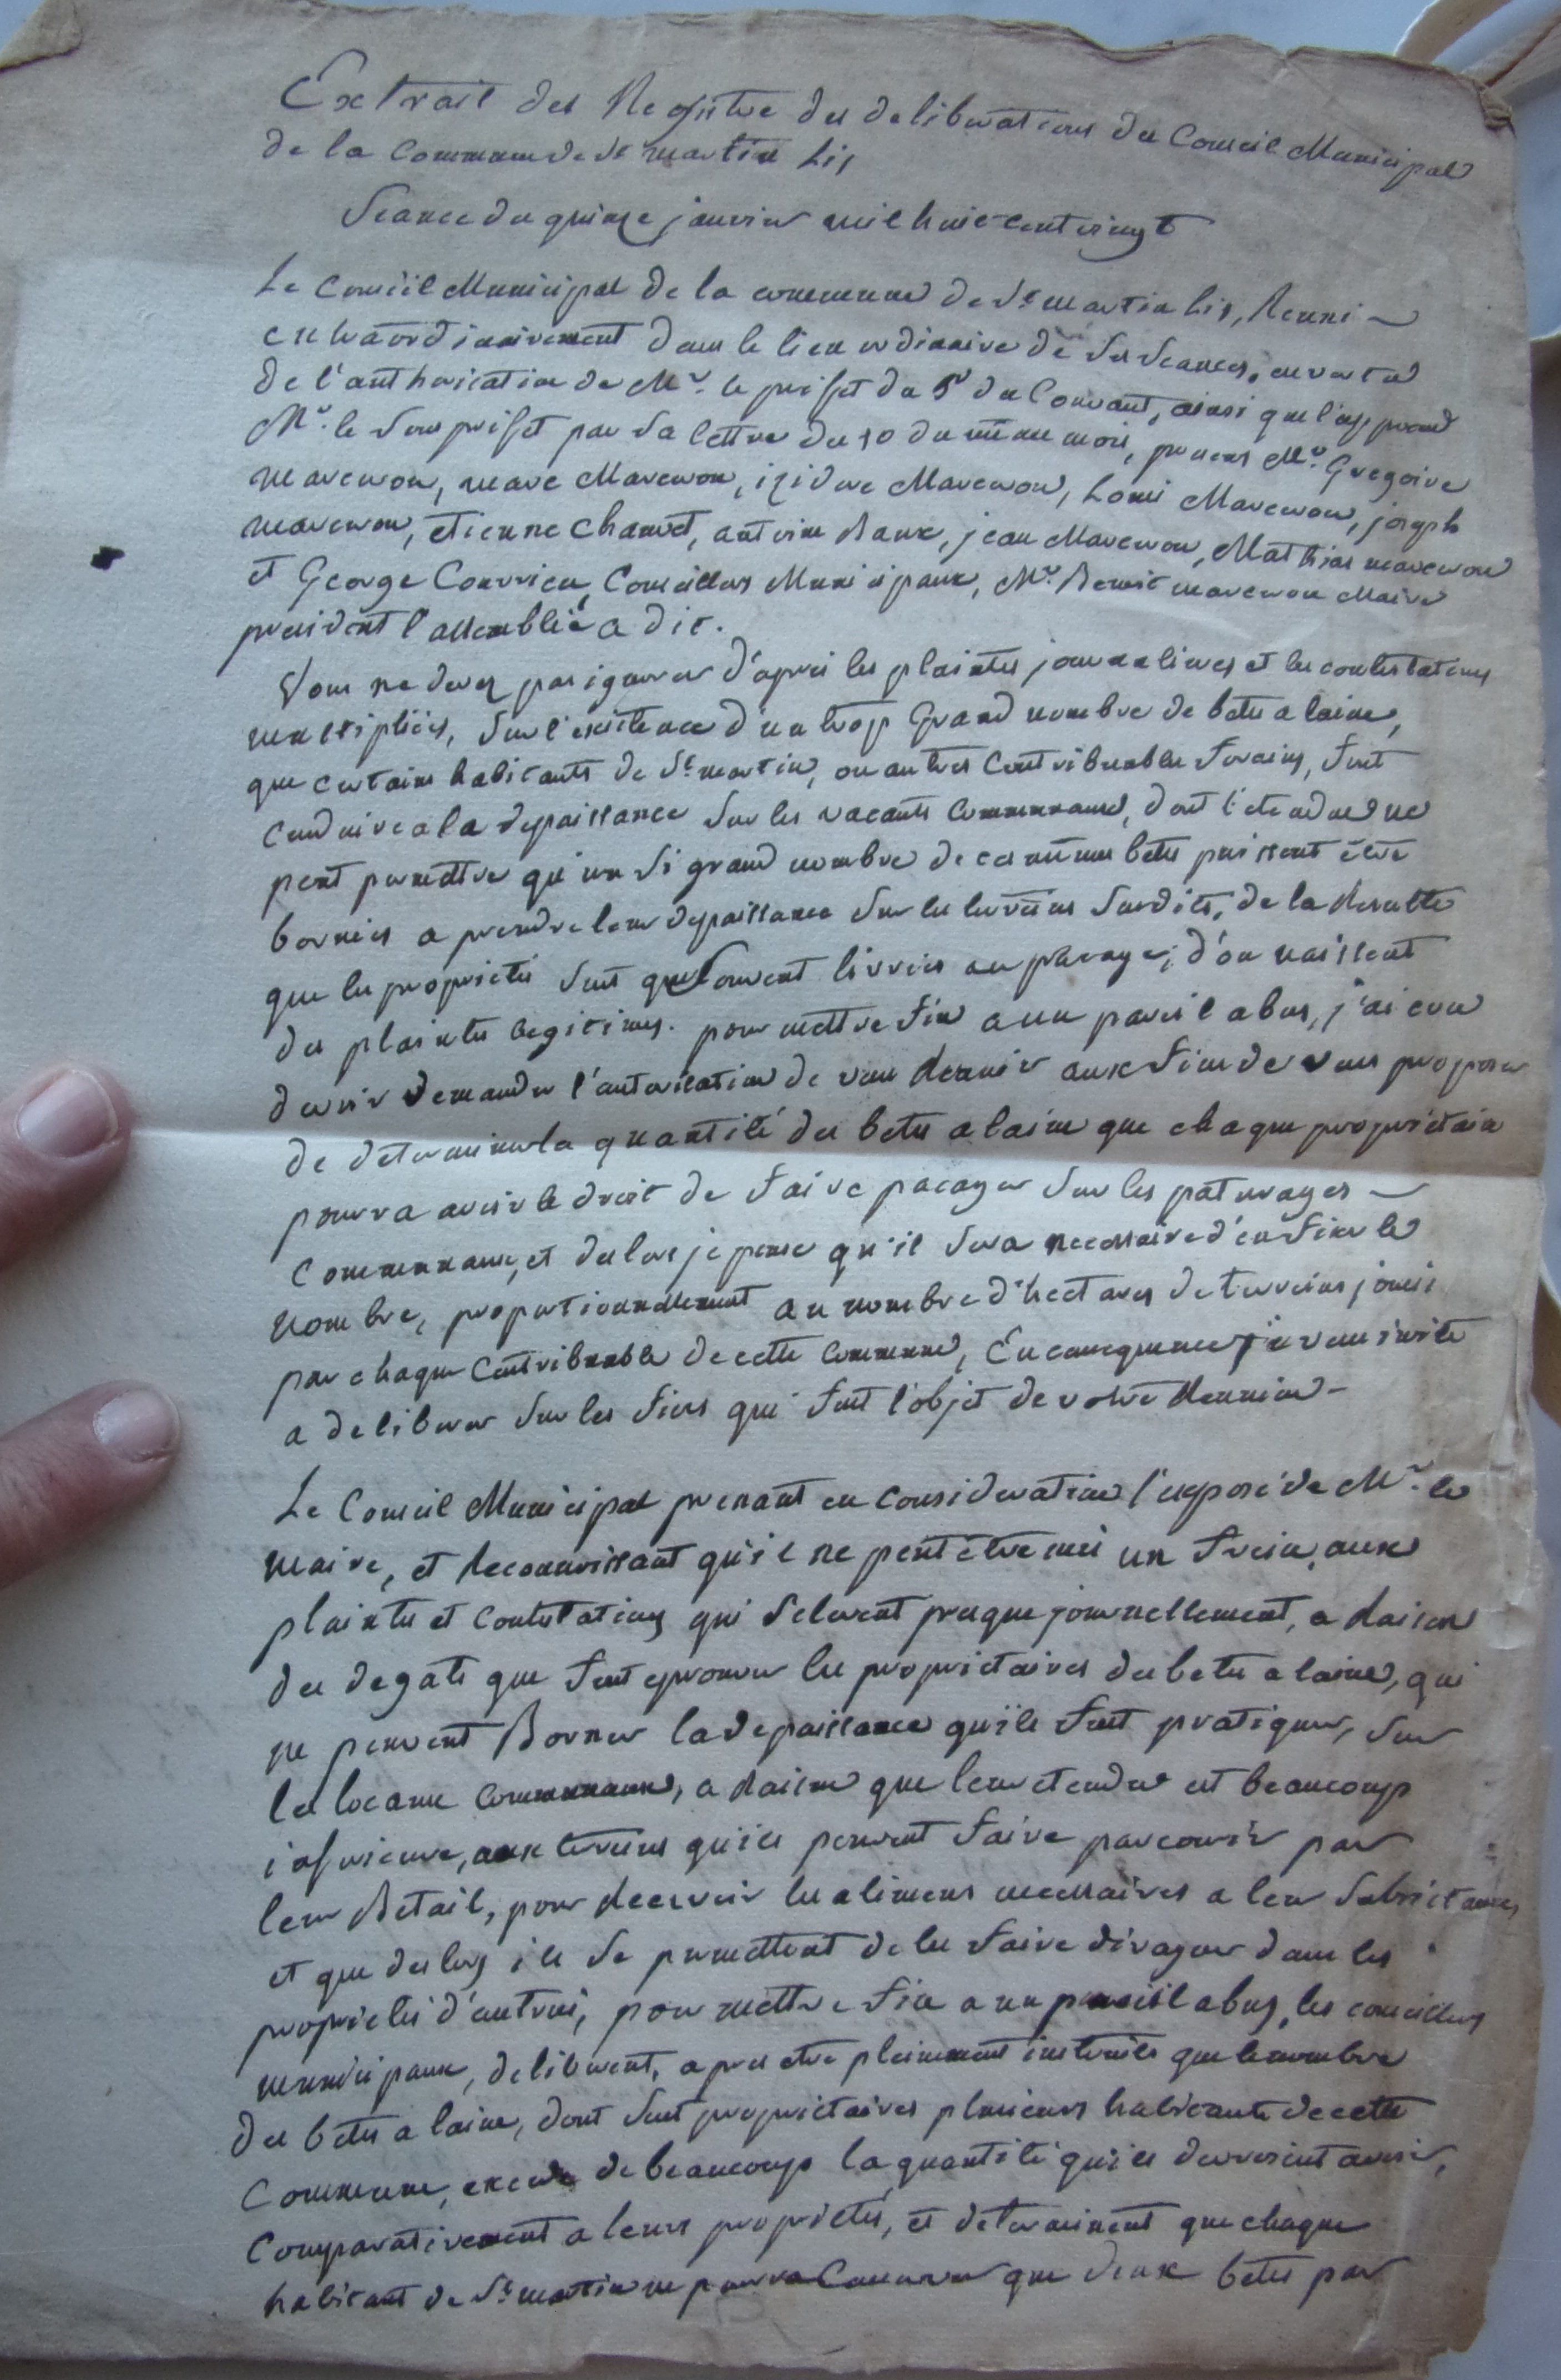 Extrait des Registre des deliberations du Conseil Municipal
de la Commune de St martin Lis
Seance du quinze janvier mil huit cent vingt
Le Conseil Municipal de la commune de St martin lis, Reuni
extraordinairement dans le lieu ordinaire de ses seances, en vertu
de l'authorisation de Mr. le prefet du 5 du Courant, ainsi que l'apprend
Mr. le sous prefet par sa lettre du 10 du même mois, presens Mr. Gregoire
Marcerou, marc Marcerou, izidore Marcerou, Louis Marcerou, joseph
marcerou, etienne Chauvet, antoine Raux, jean Marcerou, Mathias marcerou
et George Courrieu, Conseillers Municipaux, Mr. Benoit marcerou Maire
president l'assemblée a dit.
Vous ne devez pas ignorer d'après les plaintes journalieres et les contestations
multipliées, sur l'existence d'un trop Grand nombre de betes a laine,
que certains habitants de St martin, ou autres Contribuables forains, font
conduire a la depaissance sur les vacants Communaux, dont l'etendue ne
peut permettre qu'un si grand nombre de ces mêmes betes puissent être
bornées a prendre leur depaissance sur les terreins susdits, de la Resulte
que les proprietés sont que souvent livrées au pacage; d'ou naissent
des plaintes legitimes. pour mettre fin a un pareil abus, j'ai cru
devoir demander l'autorisation de vous Reunir aux fins de vous proposer
de determiner la quantité des betes a laine que chaque proprietaire
pourra avoir le droit de faire pacager sur les paturages
Communaux, et des lors je pense qu'il sera necessaire d'en fixer le
nombre, proportionnellement au nombre d'hectares de terreins jouis
par chaque Contribuable de cette Commune, En consequence je vous invite
a deliberer sur les fins qui font l'objet de votre Reunion
Le Conseil Municipal prenant en Consideration l'exposé de Mr. le
Maire, et Reconnoissant qu'il ne peut être mis un frein, aux
plaintes et Contestations qui s'elevent presque journellement, a Raison
des degats que font eprouver les proprietaires des betes a laine, qui
ne peuvent Borner la depaissance qu'ils font pratiquer, sur
les locaux Communaux, a Raison que leur etendue est beaucoup
inferieure, aux terreins qu'ils peuvent faire parcourir par
leur Betail, pour Recevoir les alimens necessaires a leur subsistances
et que des lors ils se permettent de les faire divaguer dans les
proprietés d'autrui, pour mettre fin a un pareil abus, les conseillers
municipaux, deliberent, apres etre pleinement instruits que le nombre
des betes a laine, dont sont proprietaires plusieurs habitants de cette
Commune, excede de beaucoup la quantité qu'ils devroient avoir,
Comparativement a leurs proprietés, et determinent que chaque
habitant de St martin ne pourra que deux betes par